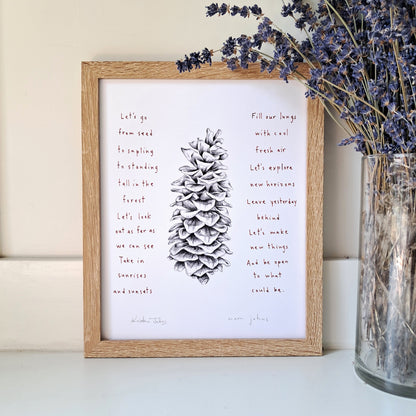 Let's go
from seed
to sapling
to standing
tall in the
forest
Let's look
out as far as
we can see
Take in
sunrises
and sunsets
Fill our lungs
with cool
fresh air
Let's explore
new horizons
Leave yesterday
behind
Let's make
new things
And be open
to what
could be.